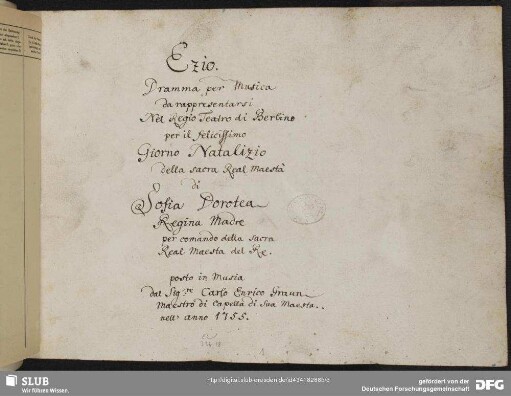 Ezio.
Dramma per Musica
da rappresentarsi
Nel Regio Teatro di Berlino
per il felicissimo
Giorno Natalizio
della sacra Real Maestà
di
Sofia Dorotea
Regina Madre
per comando della sacra
Real Maesta del Re.
posto in Musia
dal Sigre Carlo Enrico Graun
Maestro di Capella di Sua Maesta.
nell' anno 1755.
SLUB
Wir führen Wissen.
gefördert von der
Deutschen Forschungsgemeinschaft
DFG